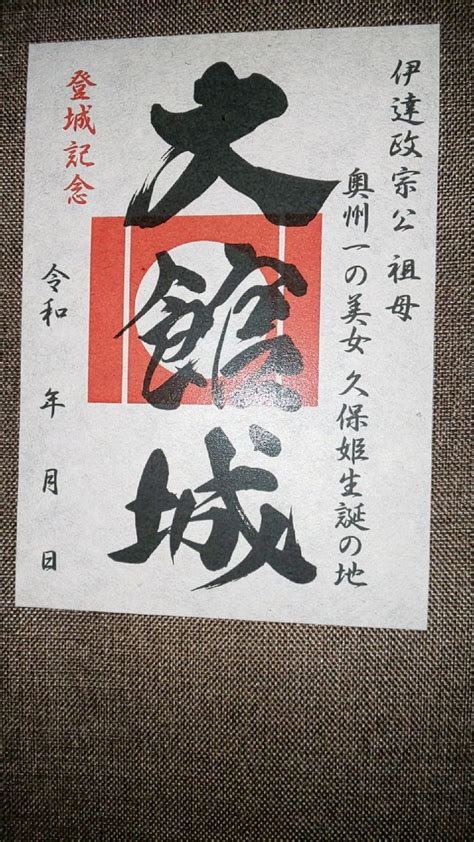 伊達政宗公 祖母
奥州一の美女 久保姫生誕の地
大館城
登城記念
令和 年 月 日